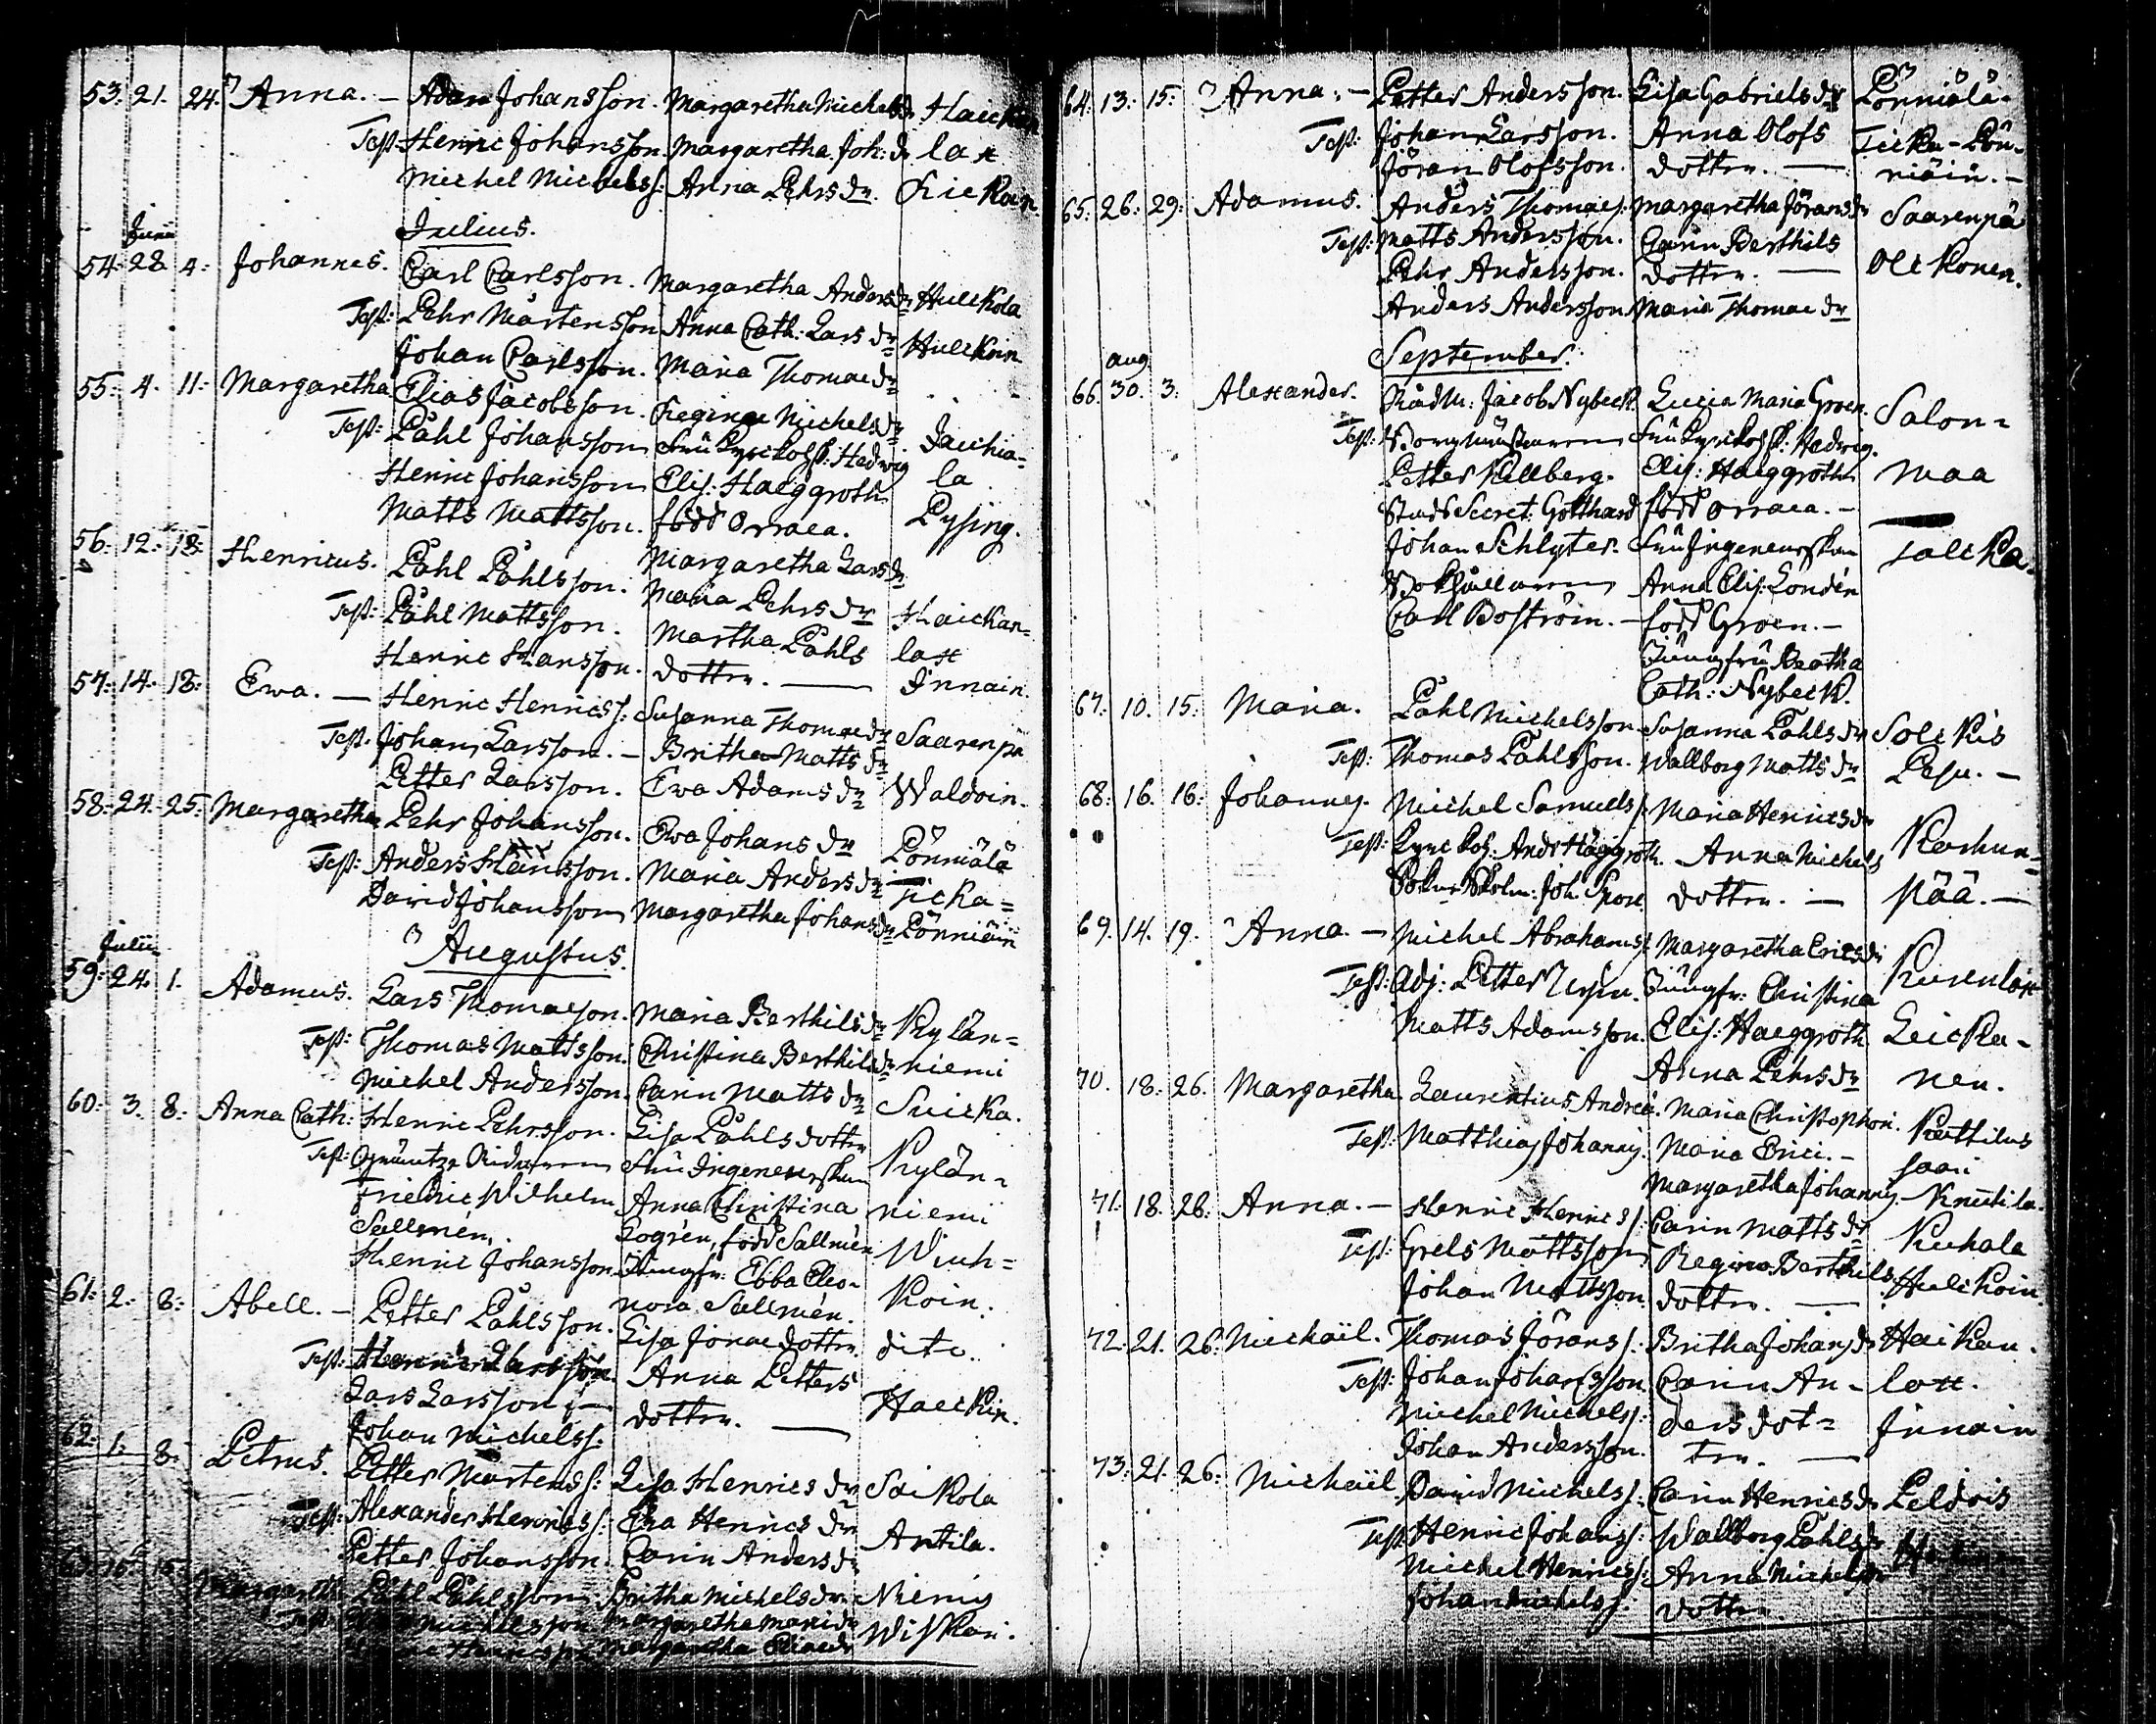 53: 21. 24. Anna. — Adam Johansson. Margaretha Michelsdr Haickan
Test: Henric Johansson. Margaretha Joh: dr lax
Michel Michelss: Anna Pehrs dr. Kickoin.
Julius.
Junii
54. 28. 4: Johannes. Carl Carlsson. Margaretha Anders dr Huickola
Test: Pehr Mårtensson Anna Cath: Lars dr Huickoin
Johan Carlsson. Maria Thomae dr
55: 4. 11: Margaretha Elias Jacobsson. Regina Michels dr Jaickia=
Test: Påhl Johansson Fru Kyrckoh: Hedwig la
Henric Johansson Elis: Haeggroth Pysing.
Matts Mattsson. född Orraea.
56: 12: 18: Henricus. Påhl Påhlsson. Margaretha Lars dr
Test: Påhl Mattsson. Maria Pehrs dr Haickan=
Henric Hansson. Martha Påhls lax
dotter. — Innain.
57: 14: 18: Ewa. — Henric Henricss: Susanna Thomae dr Saarenpä
Test. Johan Larsson. — Britha Matts dr
Petter Larsson. Ewa Adams dr Waldoin.
58: 24: 25: Margaretha Pehr Johansson. Ewa Johans dr Pönniälä
Test: Anders Hansson. Maria Anders dr Ticka=
David Johansson Margaretha Johans dr Pönniäin
Augustus.
Julii
59: 24. 1. Adamus. Lars Thomaeson. Maria Berthils dr Kylän=
Test: Thomas Mattsson. Christina Berthils dr niemi
Michel Andersson. Carin Matts dr Suicka.
60: 3. 8: Anna Cath: Henric Pehrsson. Lisa Påhls dotter Kylän=
Test: Fru Ingeneurskan niemi
Friedric Wilhelm Anna Christina Wiuh=
Sallmén, Logrén, född Sallmén koin.
Henric Johansson Jungfr: Ebba Eleo-
nora Sallmén.
61: 2. 8: Abell. — Petter Påhlsson. Lisa Jonae dotter dito.
Test: Anna Petters Haickin.
Lars Larsson; — dotter. —
Johan Michelss:
62: 1. 8: Petrus. Petter Mårtenss: Lisa Henrics dr Saikola
Test: Alexander Henricss: Ewa Henrics dr Antila.
Petter Johansson. Carin Anders dr
63: 15: Margaretha Påhl Påhlsson Britha Michels dr Niemis
Test: Michelsson Margaretha Wiskari.
Margaretha Eliae dr
64: 13: 15: Anna. — Petter Andersson. Lisa Gabriels dr Pönniälä.
Test: Johan Larsson. Anna Olofs Ticka-Pön-
Jöran Olofsson. dotter. — niäin. —
65: 26: 29: Adamus. Anders Thomaes: Margaretha Jörans dr Saarenpä
Test: Matts Andersson. Carin Berthils
Pehr Andersson. dotter. — Olckonen.
Anders Andersson Maria Thomae dr
September.
aug
66. 30. 3: Alexander. Rådm: Jacob Nybeck. Lucia Maria Groen. Salon=
Test: Borgmästaren Fru Kyrckoh: Hedwig. maa
Petter Kellberg. Elis: Haeggroth
Stads Secret: Gotthard född Orraea. —
Johan Schlyter. Fru Ingeneurskan Talcka.
Bokhållaren Anna Elis: Londén
Carl Boström. — född Groen. —
Jungfru Beatha
Cath: Nybeck.
67: 10. 15: Maria. Påhl Michelsson. Susanna Påhls dr Solckis
Test: Thomas Påhlsson. Wallborg Matts dr Pesu. —
68: 16. 16: Johannes. Michel Samuels: Maria Henrics dr
Test: And: Häggroth. Anna Michels Kaskun=
Joh: dotter. — pää. —
69. 14. 19. Anna. — Michel Abrahams: Margaretha Erics dr Kirenlax
Test: Adj: Petter Jungfr: Christina
Matts Adamsson. Elis: Haeggroth Leicku-
Anna Pehrs dr nen.
70. 18. 26. Margaretha. Laurentius Andreae. Maria Christophori. Kattilus
Test: Matthias Johannis. Maria Erici. — saari
Margaretha Johannis. — Knutila.
71. 18. 26: Anna. — Henric Henrics: Carin Matts dr Kuhala
Test: Grels Mattsson Regina Berthils Huickoin.
Johan Mattsson. dotter. —
72. 21. 26: Michaël. Thomas Jörans: Britha Johans dr Haickan.
Test: Johan Johansson. Carin An- lax.
Michel Michels: ders dot= Innain
Johan Andersson. ter. —
73: 21. 26: Michaël David Michels: Carin Henrics dr Peldois
Test: Henric Johans: Wallborg Påhls dr
Michel Henrics: Anna Michels
Johan Michels: dotter.